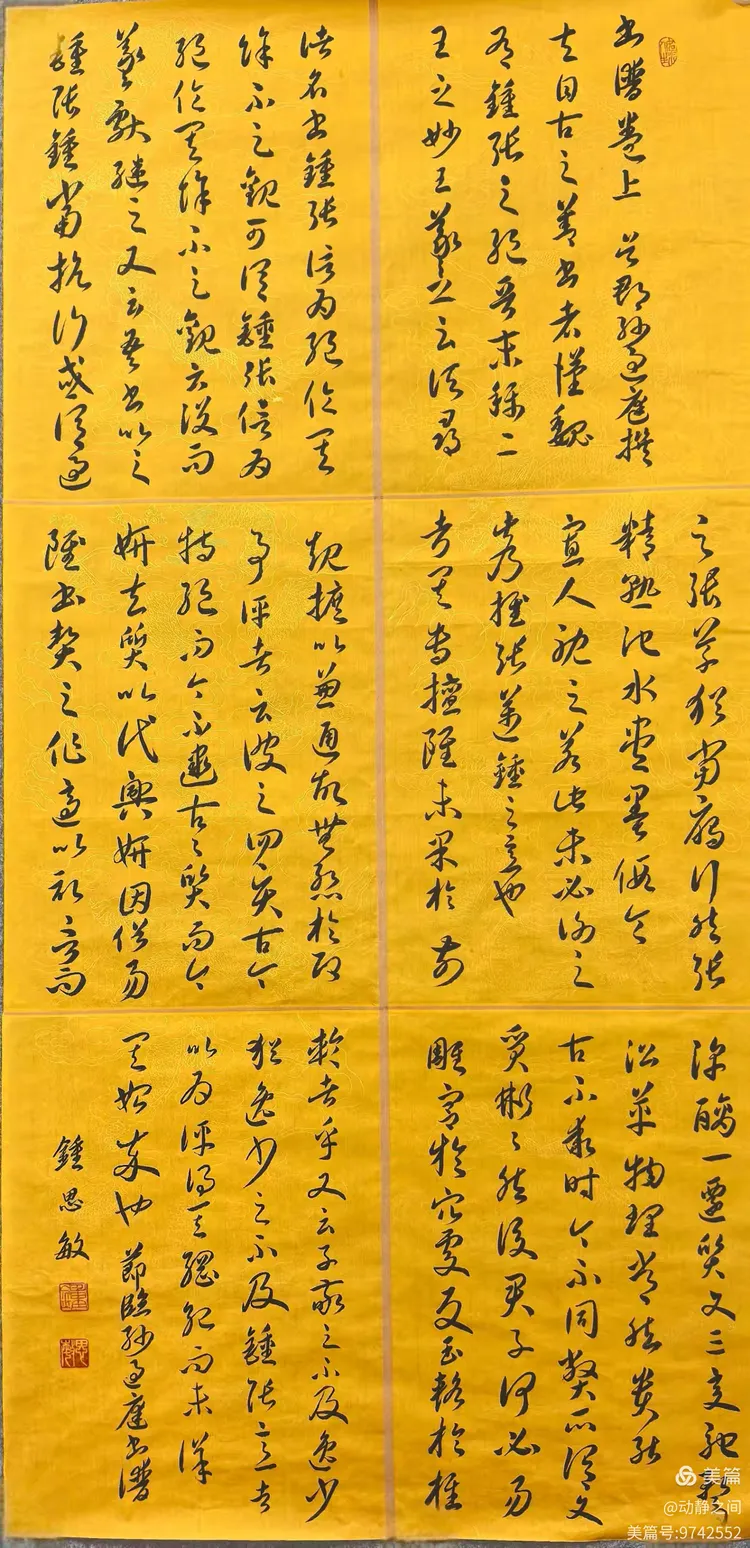 書譜卷上 吳郡孫過庭撰
夫自古之善書者漢魏
有鍾張之絕晉末稱二
王之妙王羲之云頃尋
諸名書鍾張信為絕倫其
餘不足觀可謂鍾張信為
絕倫其餘不足觀云沒而
羲獻繼之又云吾書比之
鍾張鍾當抗行或謂過
之張草猶當雁行然張
精熟池水盡墨假令
寡人耽之若此未必謝之
此乃推張邁鍾之意也
考其專擅雖未果於前
規摭以兼通故無慙於即
事評者云彼之四賢古今
特絕而今不逮古〻質而今
妍夫質以代興妍因俗易
雖書契之作適以記言而
淳醨一遷質文三變馳騖
沿革物理常然貴能
古不乖時今不同弊所謂文
質彬〻然後君子何必易
雕宮於穴處反玉輅於椎
輪者乎又云子敬之不及逸少
猶逸少之不及鍾張意者
以為評得其綱紀而未詳
其始卒也 節臨孫過庭書譜
鍾思敏
美篇
@动静之间
美篇号:9742552